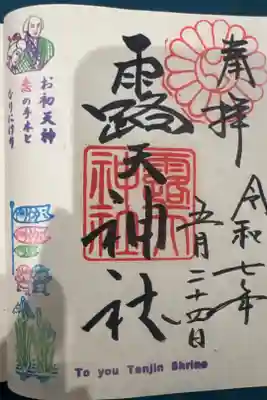 奉拝
令和七年
五月二十四日
露天神社
露天神社
お初天神
恋の手本と
なりにけり
To you Tenjin Shrine